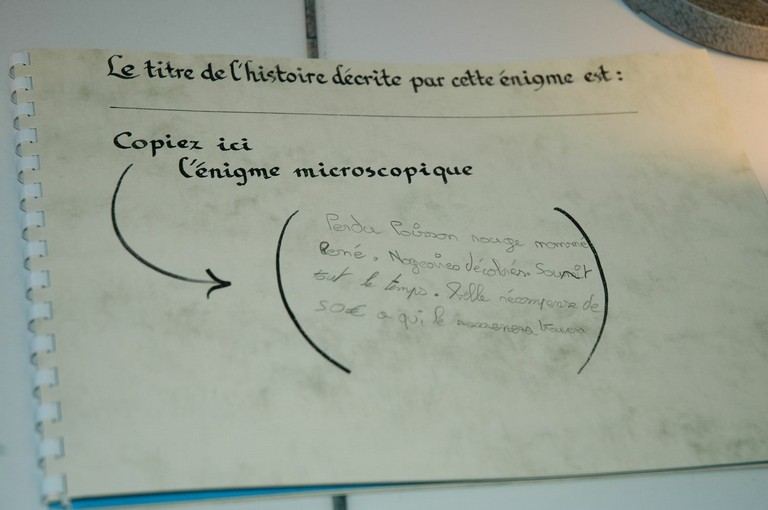 Le titre de l'histoire décrite par cette énigme est :
Copiez ici
l'énigme microscopique
Perdu Poisson rouge nommé
René. Nageoires décolorées. Sourit
tout le temps. Belle récompense de
50€ a qui le